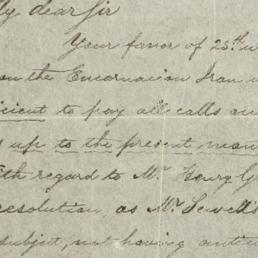 My dear Sir
Your favor of 25th
on the Encarnacion Iron
icient to pay all calls
up to the present
regard to Mr. Henry G
resolution, as Mr. Sewell's
subject, not having